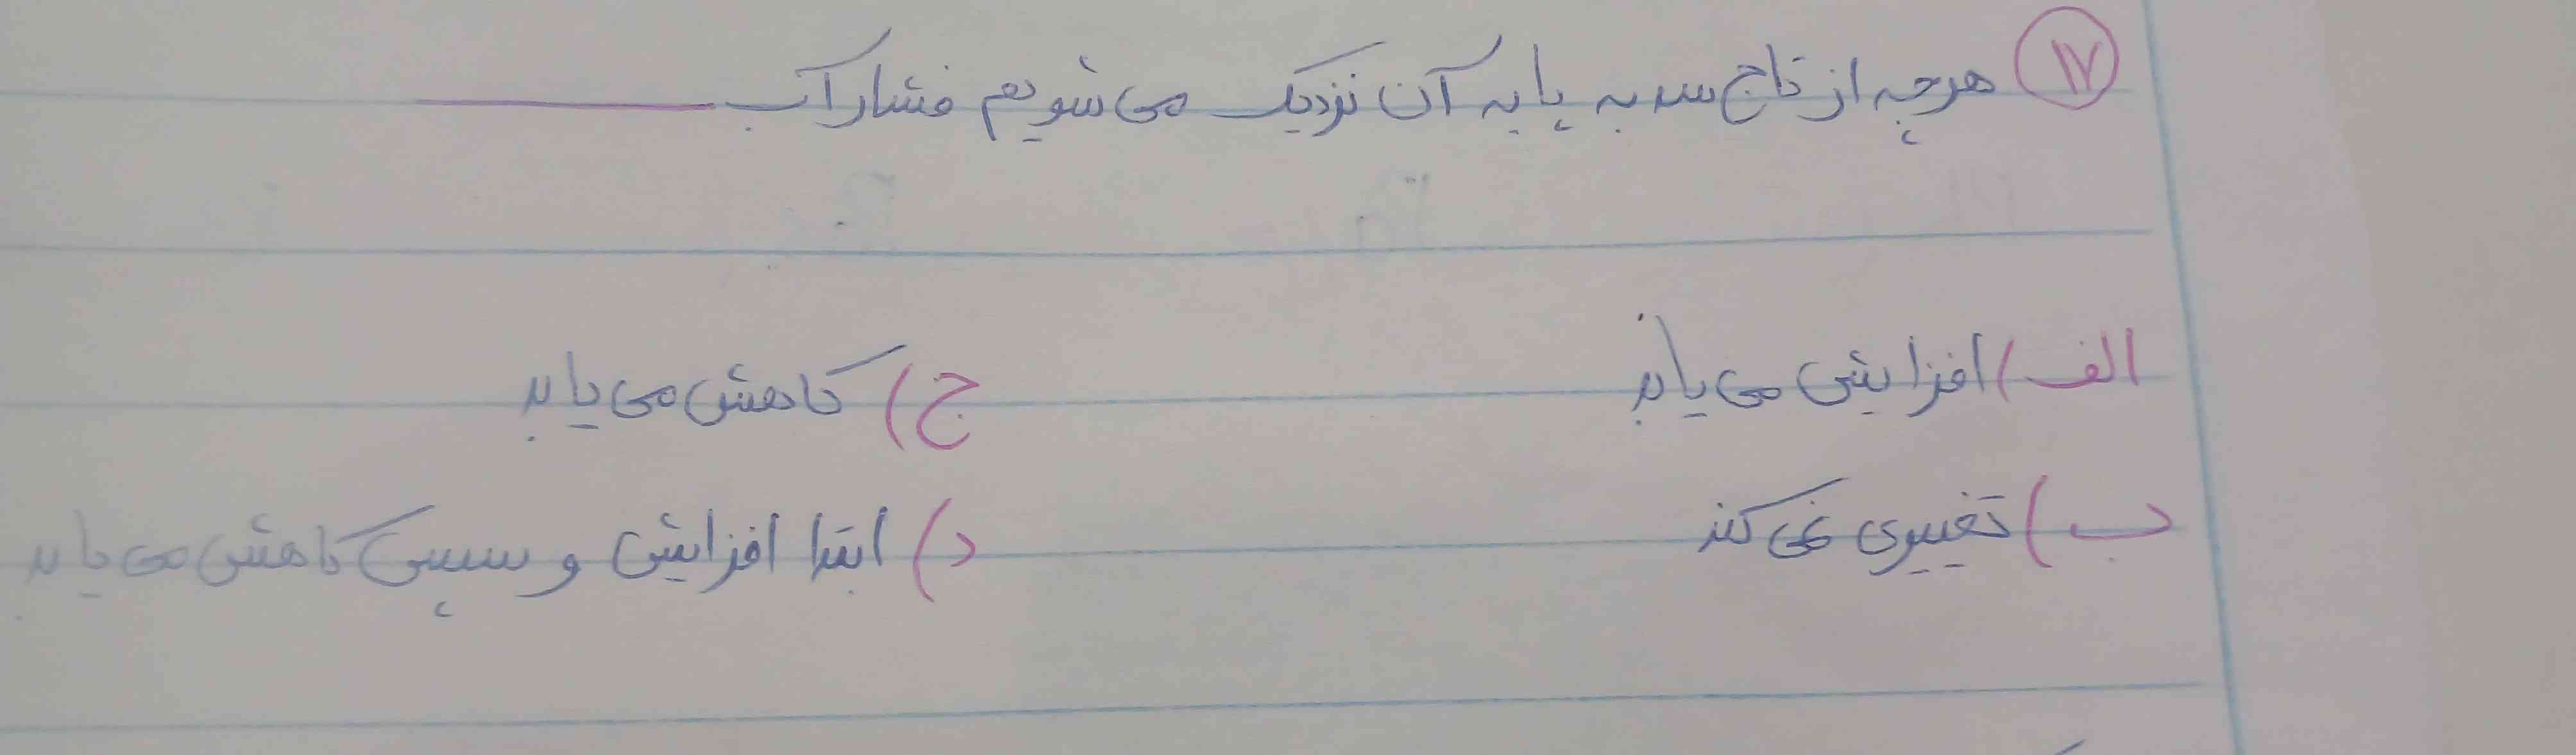 ۱۷ هرچه از تاج سد به پایه آن نزدیک می شویم فشار آب ــــــــ
الف) افزایش می یابد ج) کاهش می یابد
ب) تغییری نمی کند د) ابتدا افزایش و سپس کاهش می یابد